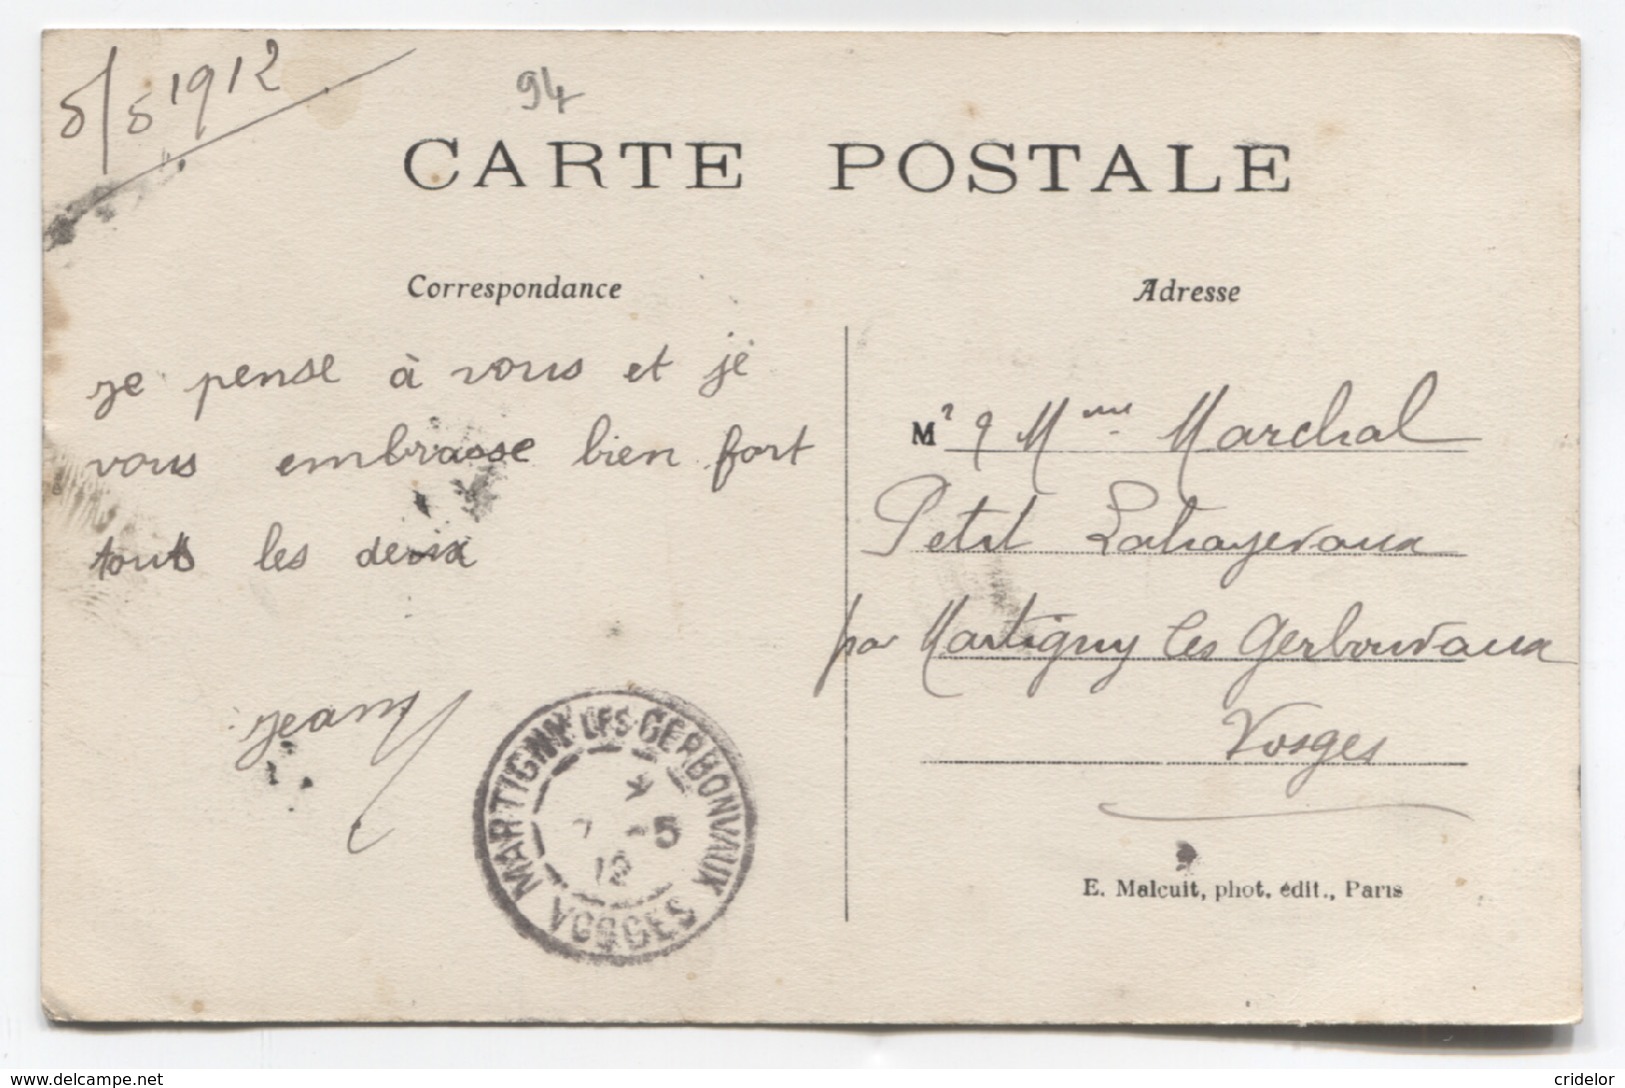 5/5 1912
94
CARTE POSTALE
Correspondance
Adresse
je pense à vous et je
vous embrasse bien fort
touts les deux
jean
Mr & Mme Marchal
Petit Lahayevaux
par Martigny les Gerbonvaux
Vosges
MARTIGNY LES GERBONVAUX
7 -5
12
VOSGES
E. Malcuit, phot. édit., Paris
www.delcampe.net
cridelor